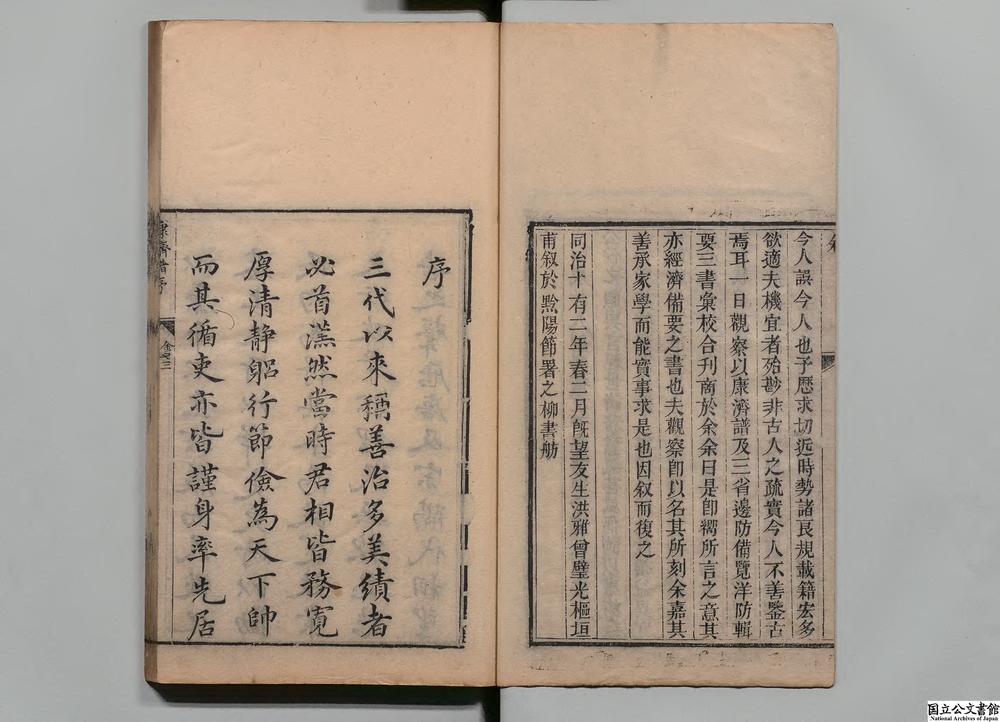 今人誤今人也予歷求切近時勢諸良規載籍宏多
欲適夫機宜者殆尠非古人之疏實今人不善鑒古
焉耳一日觀察以康濟譜及三省邊防備覽洋防輯
要三書彙校合刊商於余余曰是卽嚮所言之意其
亦經濟備要之書也夫觀察卽以名其所刻余嘉其
善承家學而能實事求是也因叙而復之
同治十有二年春二月旣望友生洪雅曾璧光樞垣
甫叙於黔陽節署之柳書舫
序
三代以來稱善治多美績者
必首漢然當時君相皆務寬
厚清靜躬行節儉為天下帥
而其循吏亦皆謹身率先居
康濟譜序
国立公文書館
National Archives of Japan